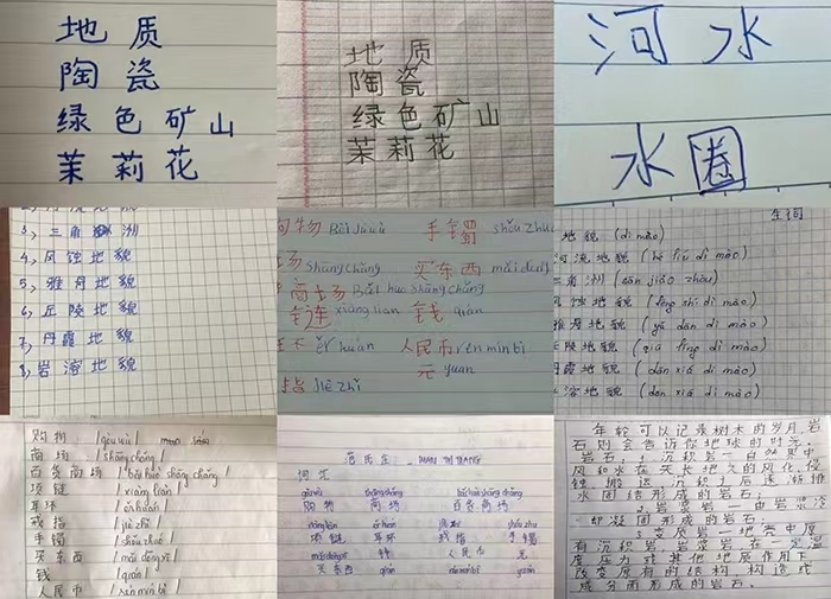 地质
陶瓷
绿色矿山
茉莉花
地质
陶瓷
绿色矿山
茉莉花
河水
水圈
3, 三角洲
4, 风蚀地貌
5, 雅丹地貌
6, 丘陵地貌
7, 丹霞地貌
8, 岩溶地貌
手镯 shǒu zhuó
shāng chǎng 买东西 mǎi dōng
商场 Bǎi huo shāng chǎng
链 xiàng lian 钱 qián
ěr huán 人民币 ren min bì
元 yuan
指 jiè zhǐ
生词
地貌 (dì mào)
河流地貌 (hé liú dì mào)
角洲 (sān jiǎo zhōu)
蚀地貌 (fēng shí dì mào)
地貌 (yǎ dān dì mào)
陵地貌 (qiū líng dì mào)
霞地貌 (dān xiá dì mào)
溶地貌 (dān xiá dì mào)
购物 /gòu wù/
商场 /shāng chǎng/
百货商场 /bǎi huò shāng chǎng/
项链 /xiàng liàn/
耳环 /ěr huán/
戒指 /jiè zhǐ/
手镯 /shǒu zhuó/
买东西 /mǎi dōng xī/
钱 /qián/
人民币 /rén mín bì/
gòu wù shāng chǎng bǎi huò shāng chǎng
购物 商场 百货商场
项链 耳环 戒指 手镯
钱 人民币 元
买东西 qián rén mín bì yuán
年轮可以记录树木的岁月,岩
石则会告诉你地球的时光。
岩石: 1, 沉积岩一自然界中
风和水在天长地久的风化、侵
蚀、搬运、沉积上后逐渐排
水固结形成的岩石;
2, 岩浆岩一由岩浆冷
却凝固形成的岩石;
3, 变质岩一地壳中原
有沉积岩、岩浆岩在一定温
度压力或其他地质作用下
改变原有的结构、构造或
成分而形成的岩石。